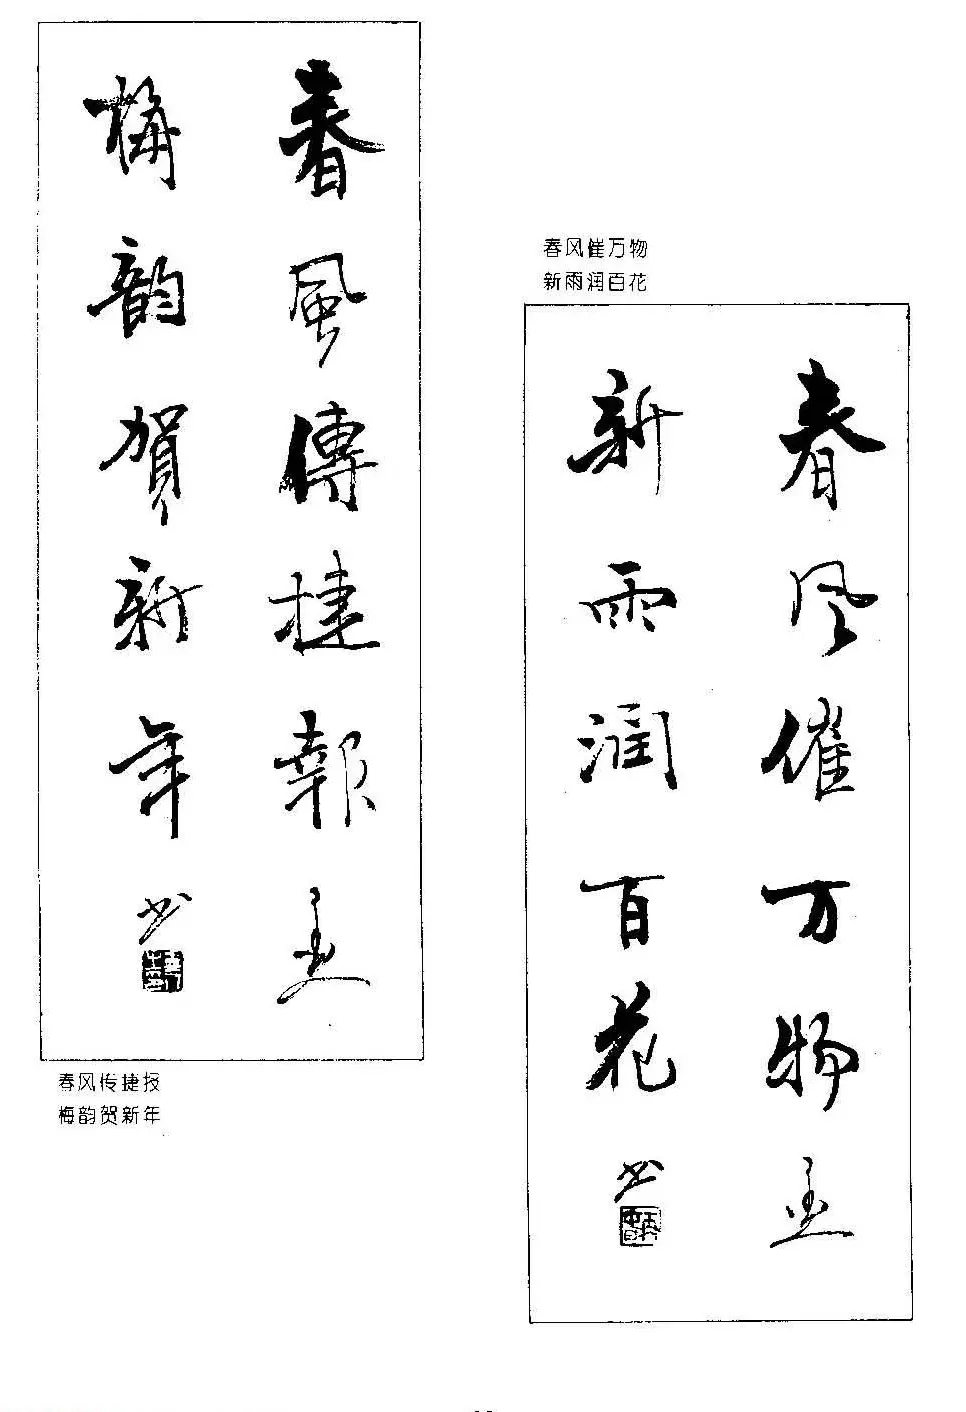 春風傳捷報
梅韵賀新年
书
春风传捷报
梅韵贺新年
春风催万物
新雨润百花
春风催万物
新雨润百花
书